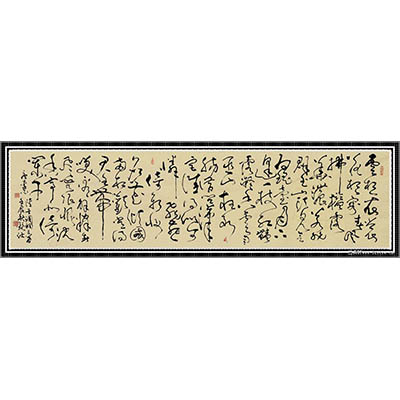 雲想衣裳
花想容春風
拂檻露
華濃若非
群玉山頭見
會向瑤臺月下
逢一枝紅艷
露凝香雲雨
巫山枉斷
腸借問漢
宮誰得似可
憐飛燕
倚新妝
名花傾國
兩相歡常得
君王帶
笑看解釋春
風無限恨沉
香亭北倚
闌干